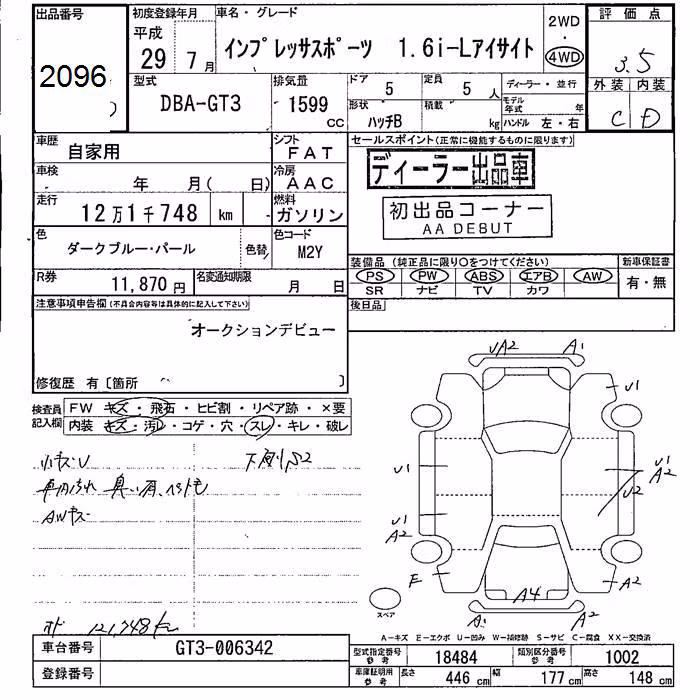 出品番号
2096
初度登録年月
平成
29年7月
車名・グレード
インプレッサスポーツ 1.6i-Lアイサイト
2WD
・
4WD
評価点
3.5
外装 内装
C D
型式
DBA-GT3
排気量
1599
CC
ドア
5
定員
5人
形状
ハッチB
積載
kg
ディーラー・並行
モデル年式 年
ハンドル 左・右
車歴
自家用
シフト
FAT
車検
年 月( 日)
冷房
AAC
走行
12万1千748 km
燃料
ガソリン
色
ダークブルー・パール
色替
色コード
M2Y
R券
11,870円
名変通知期限
月 日
セールスポイント(正常に機能するものに限ります)
ディーラー出品車
初出品コーナー
AA DEBUT
装備品(純正品に限り○をつけてください)
PS PW ABS エアB AW
SR ナビ TV カワ
新車保証書
有・無
後日品
注意事項申告欄(不具合内容等は具体的に記入して下さい)
オークションデビュー
修復歴 有〔箇所 〕
検査員
記入欄
FW キズ・飛石・ヒビ割・リペア跡・×要
内装 キズ・汚レ・コゲ・穴・スレ・キレ・破レ
小キズU
下廻りS2
AWキズ
121,748km
UA2 A1
U1
U1
U1
A2
U2
U1
A2
E
A2
A4
A1 A2
スペア
A-キズ E-エクボ U-凹み W-補修跡 S-サビ C-腐食 XX-交換済
車台番号
GT3-006342
登録番号
型式指定番号
参考
18484
類別区分番号
参考
1002
車庫証明用
参考
長さ
446 cm
幅
177 cm
高さ
148 cm